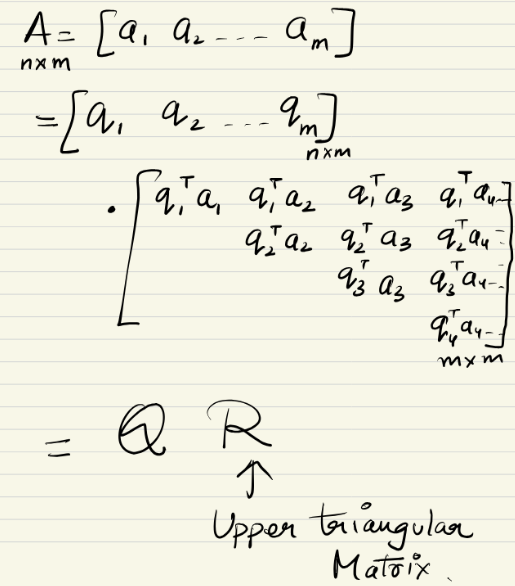 A = [a₁ a₂ ---- aₘ]
n×m
= [q₁ q₂ ---- qₘ]
n×m
· [q₁ᵀa₁ q₁ᵀa₂ q₁ᵀa₃ q₁ᵀa₄--
q₂ᵀa₂ q₂ᵀa₃ q₂ᵀa₄--
q₃ᵀa₃ q₃ᵀa₄--
q₄ᵀa₄--]
m×m
= Q R
↑
Upper triangular
Matrix.